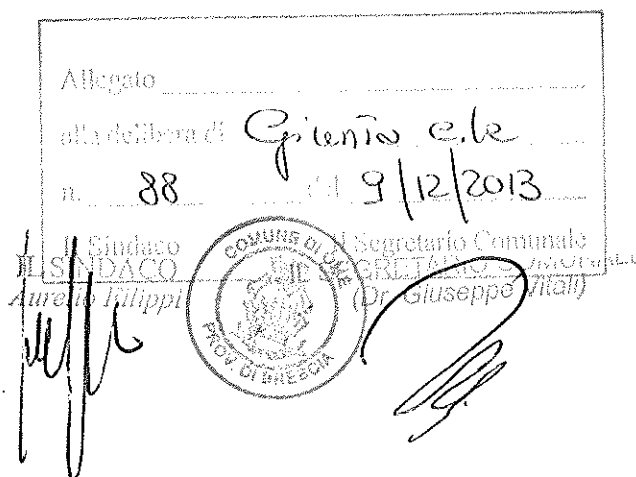 Allegato
alla delibera di Giunta c.le
n. 88 del 9/12/2013
Il Sindaco Il Segretario Comunale
IL SINDACO IL SEGRETARIO COMUNALE
Aurelio Filippi (Dr. Giuseppe Vitali)
COMUNE DI OME
PROV. DI BRESCIA